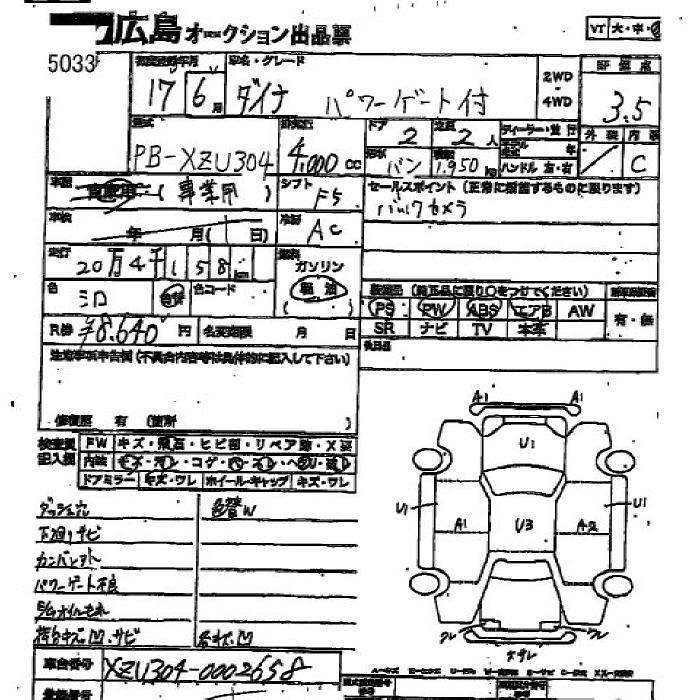 広島オークション出品票
VT 大・中・小
5033
初度登録年月 車名・グレード 評価点
17 6月 ダイナ パワーゲート付 2WD・4WD 3.5
型式 排気量 ドア 定員 ディーラー・並行 外装 内装
PB-XZU304 4,000cc 2 2人 モデル年式 年
形状 バン 積載 1,950kg ハンドル 左・右 C
車歴 (事業用) シフト F5
セールスポイント (正常に機能するものに限ります)
バックカメラ
車検 年 月( 日) 冷房 AC
走行 20万4千158km 燃料 ガソリン
軽油
色 シロ 色替 色コード
装備品 (純正品に限り〇をつけてください)
PS PW ABS エアB AW 有・無
SR ナビ TV 本革
R券 ¥8,640円 名変期限 月 日
後日品
注意事項申告欄(不具合内容等は具体的に記入して下さい)
修復歴 有 (箇所 )
検査員記入欄 FW キズ・飛石・ヒビ割・リペア跡・X要
内装 キズ・汚レ・コゲ・穴・スレ・ヘタリ・臭い
ドアミラー キズ・ワレ ホイール・キャップ キズ・ワレ
ダッシュ穴 色替W
下廻りサビ
パワーゲート不良
E/Gオイルモレ
荷台キズ凹、サビ
A1 A1
U1
U1 U1
A1 U3 A2
ワレ ワレ
車台番号 XZU304-0002658
登録番号